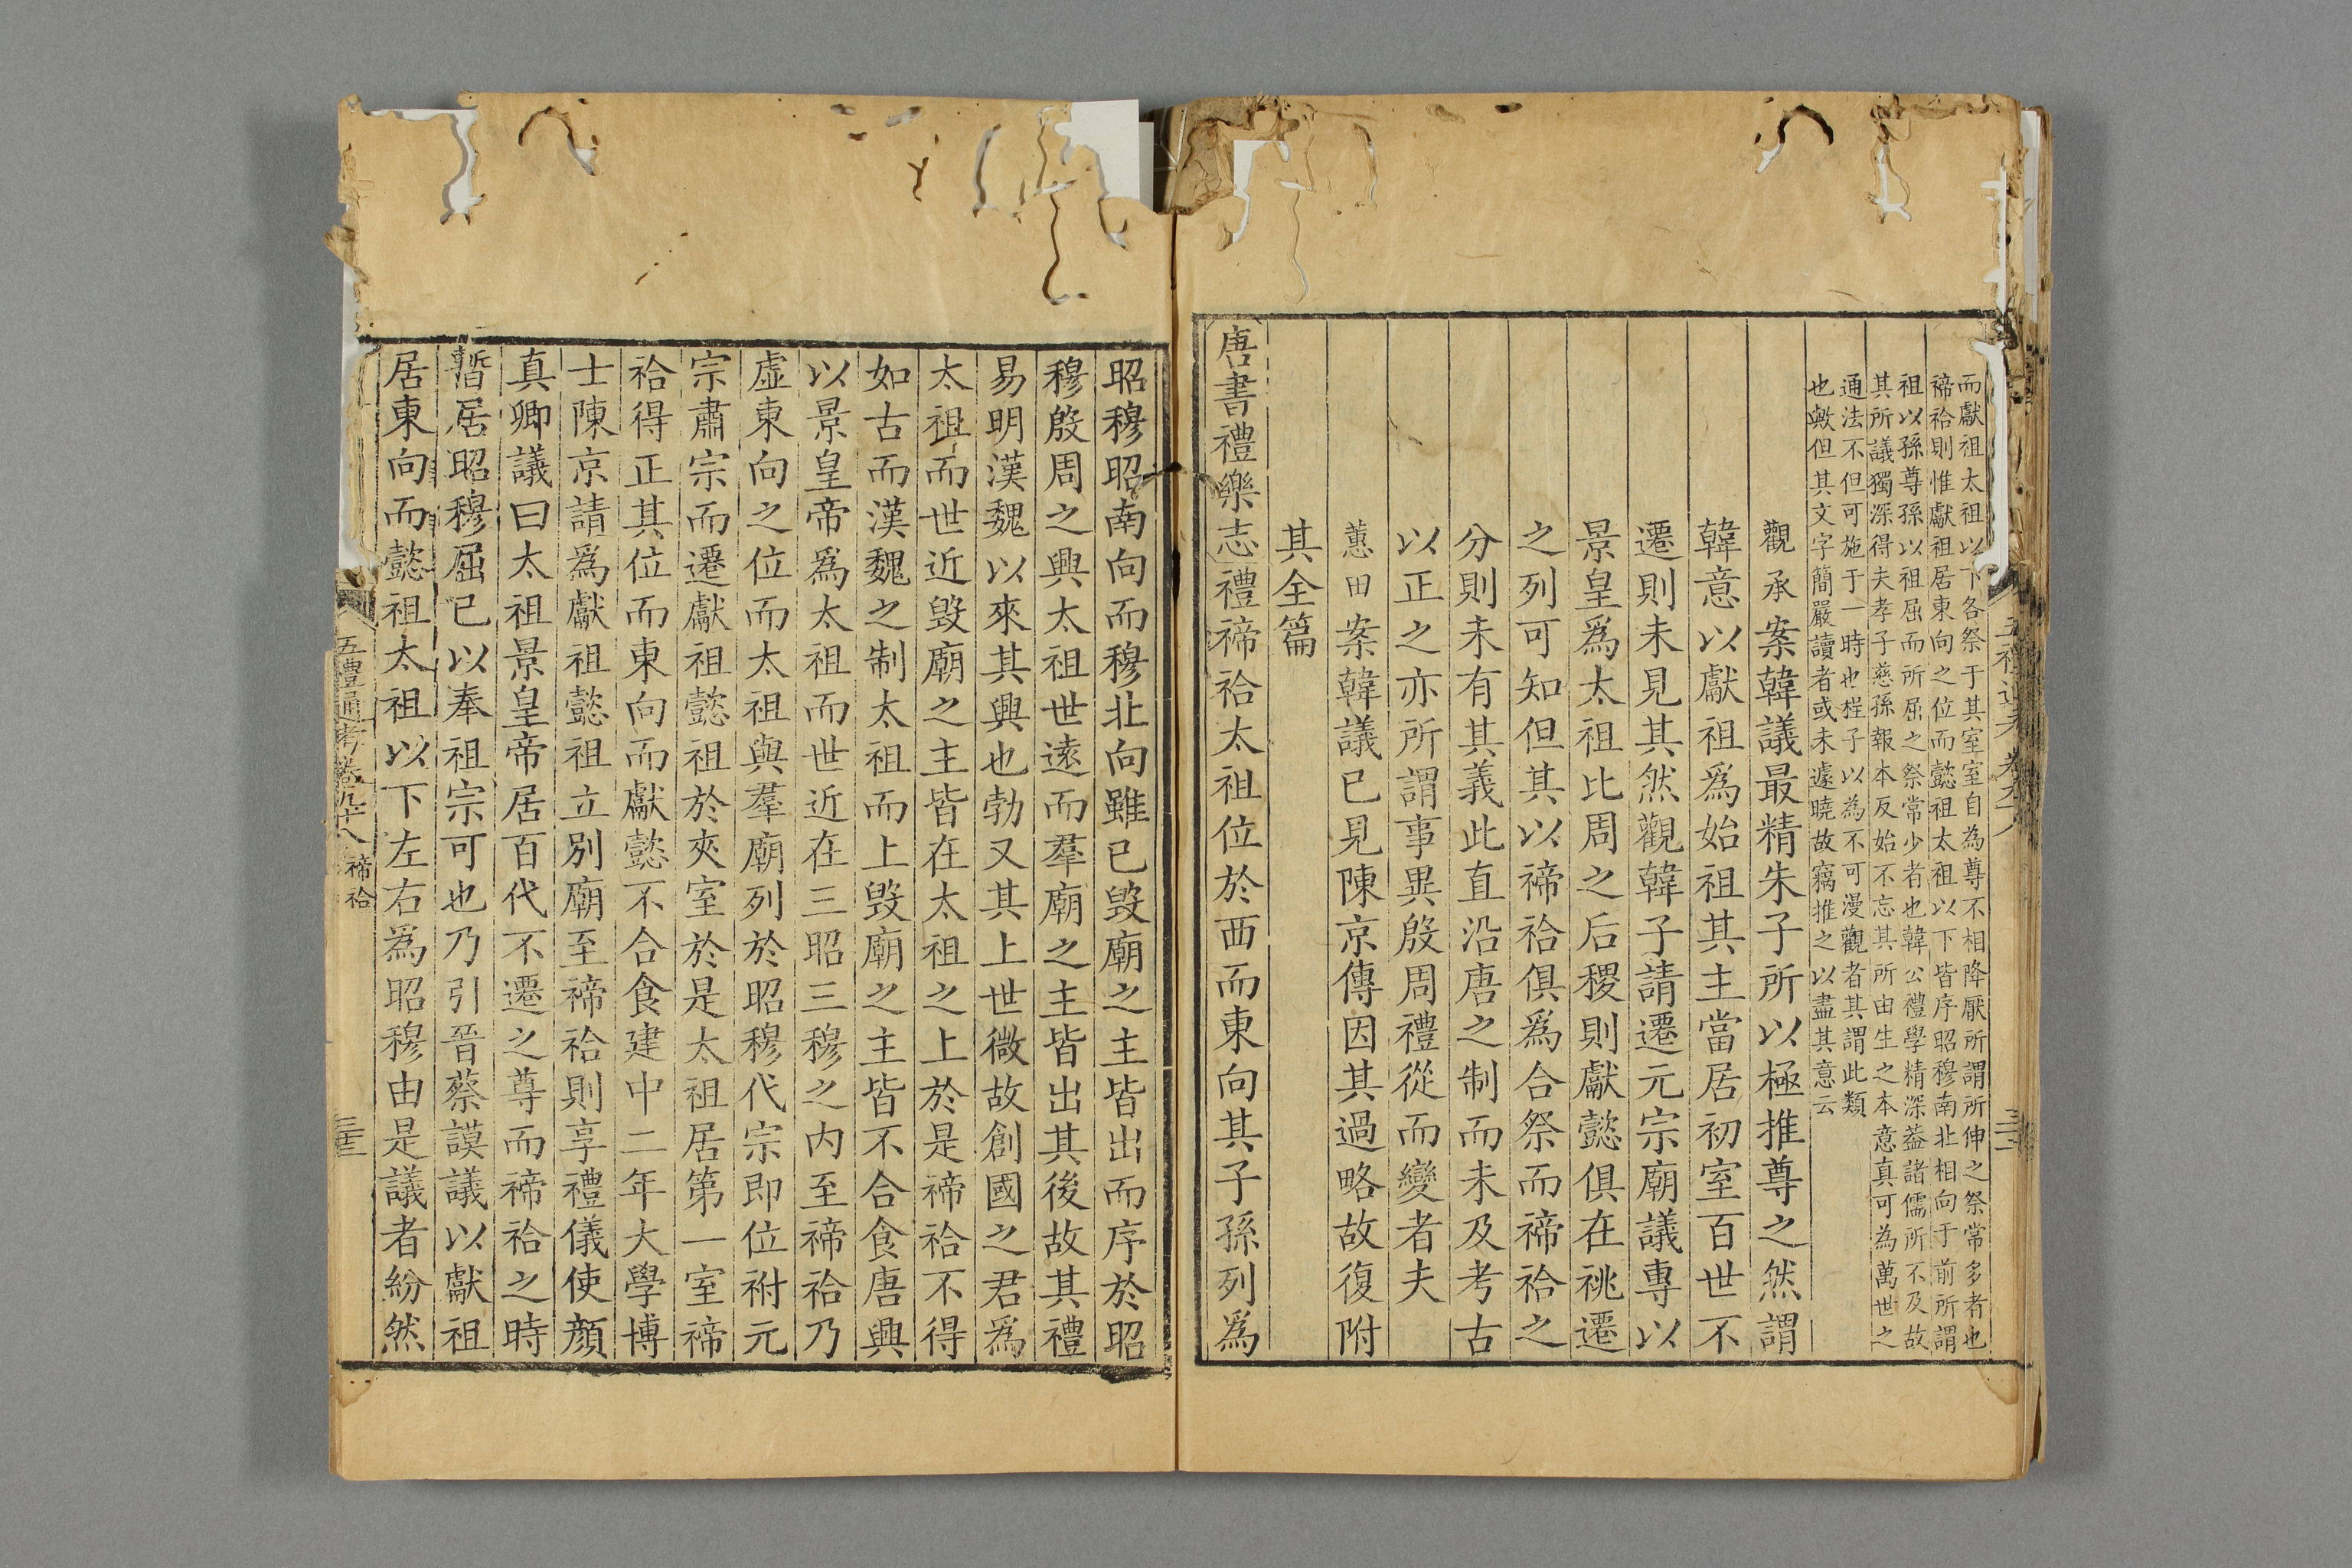 而獻祖太祖以下各祭于其室室自為尊不相降厭所謂所伸之祭常多者也
禘祫則惟獻祖居東向之位而懿祖太祖以下皆序昭穆南北相向于前所謂
祖以孫尊孫以祖屈而所屈之祭常少者也韓公禮學精深葢諸儒所不及故
其所議獨深得夫孝子慈孫報本反始不忘其所由生之本意真可為萬世之
通法不但可施于一時也程子以為不可漫觀者其謂此類
也歟但其文字簡嚴讀者或未遽曉故竊推之以盡其意云
觀承案韓議最精朱子所以極推尊之然謂
韓意以獻祖爲始祖其主當居初室百世不
遷則未見其然觀韓子請遷元宗廟議專以
景皇爲太祖比周之后稷則獻懿俱在祧遷
之列可知但其以禘祫俱爲合祭而禘祫之
分則未有其義此直沿唐之制而未及考古
以正之亦所謂事異殷周禮從而變者夫
蕙田案韓議已見陳京傳因其過略故復附
其全篇
唐書禮樂志禮禘祫太祖位於西而東向其子孫列爲
昭穆昭南向而穆北向雖已毀廟之主皆出而序於昭
穆殷周之興太祖世遠而羣廟之主皆出其後故其禮
易明漢魏以來其興也勃又其上世微故創國之君爲
太祖而世近毀廟之主皆在太祖之上於是禘祫不得
如古而漢魏之制太祖而上毀廟之主皆不合食唐興
以景皇帝爲太祖而世近在三昭三穆之内至禘祫乃
虛東向之位而太祖與羣廟列於昭穆代宗即位祔元
宗肅宗而遷獻祖懿祖於夾室於是太祖居第一室禘
祫得正其位而東向而獻懿不合食建中二年大學博
士陳京請爲獻祖懿祖立別廟至禘祫則享禮儀使顏
真卿議曰太祖景皇帝居百代不遷之尊而禘祫之時
暫居昭穆屈已以奉祖宗可也乃引晉蔡謨議以獻祖
居東向而懿祖太祖以下左右爲昭穆由是議者紛然
五禮通考卷九十八 禘祫